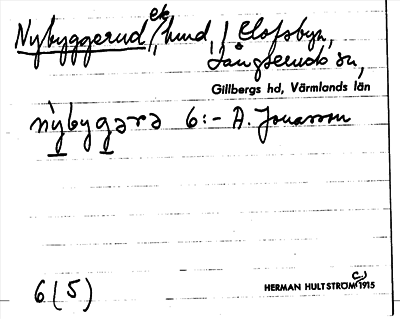 Nybyggerud ek/hmd, / Olofsbyn,
Långseruds sn,
Gillbergs hd, Värmlands län
nybygara 6:- A. Jonasson
6(5)
HERMAN HULTSTRÖM 1915